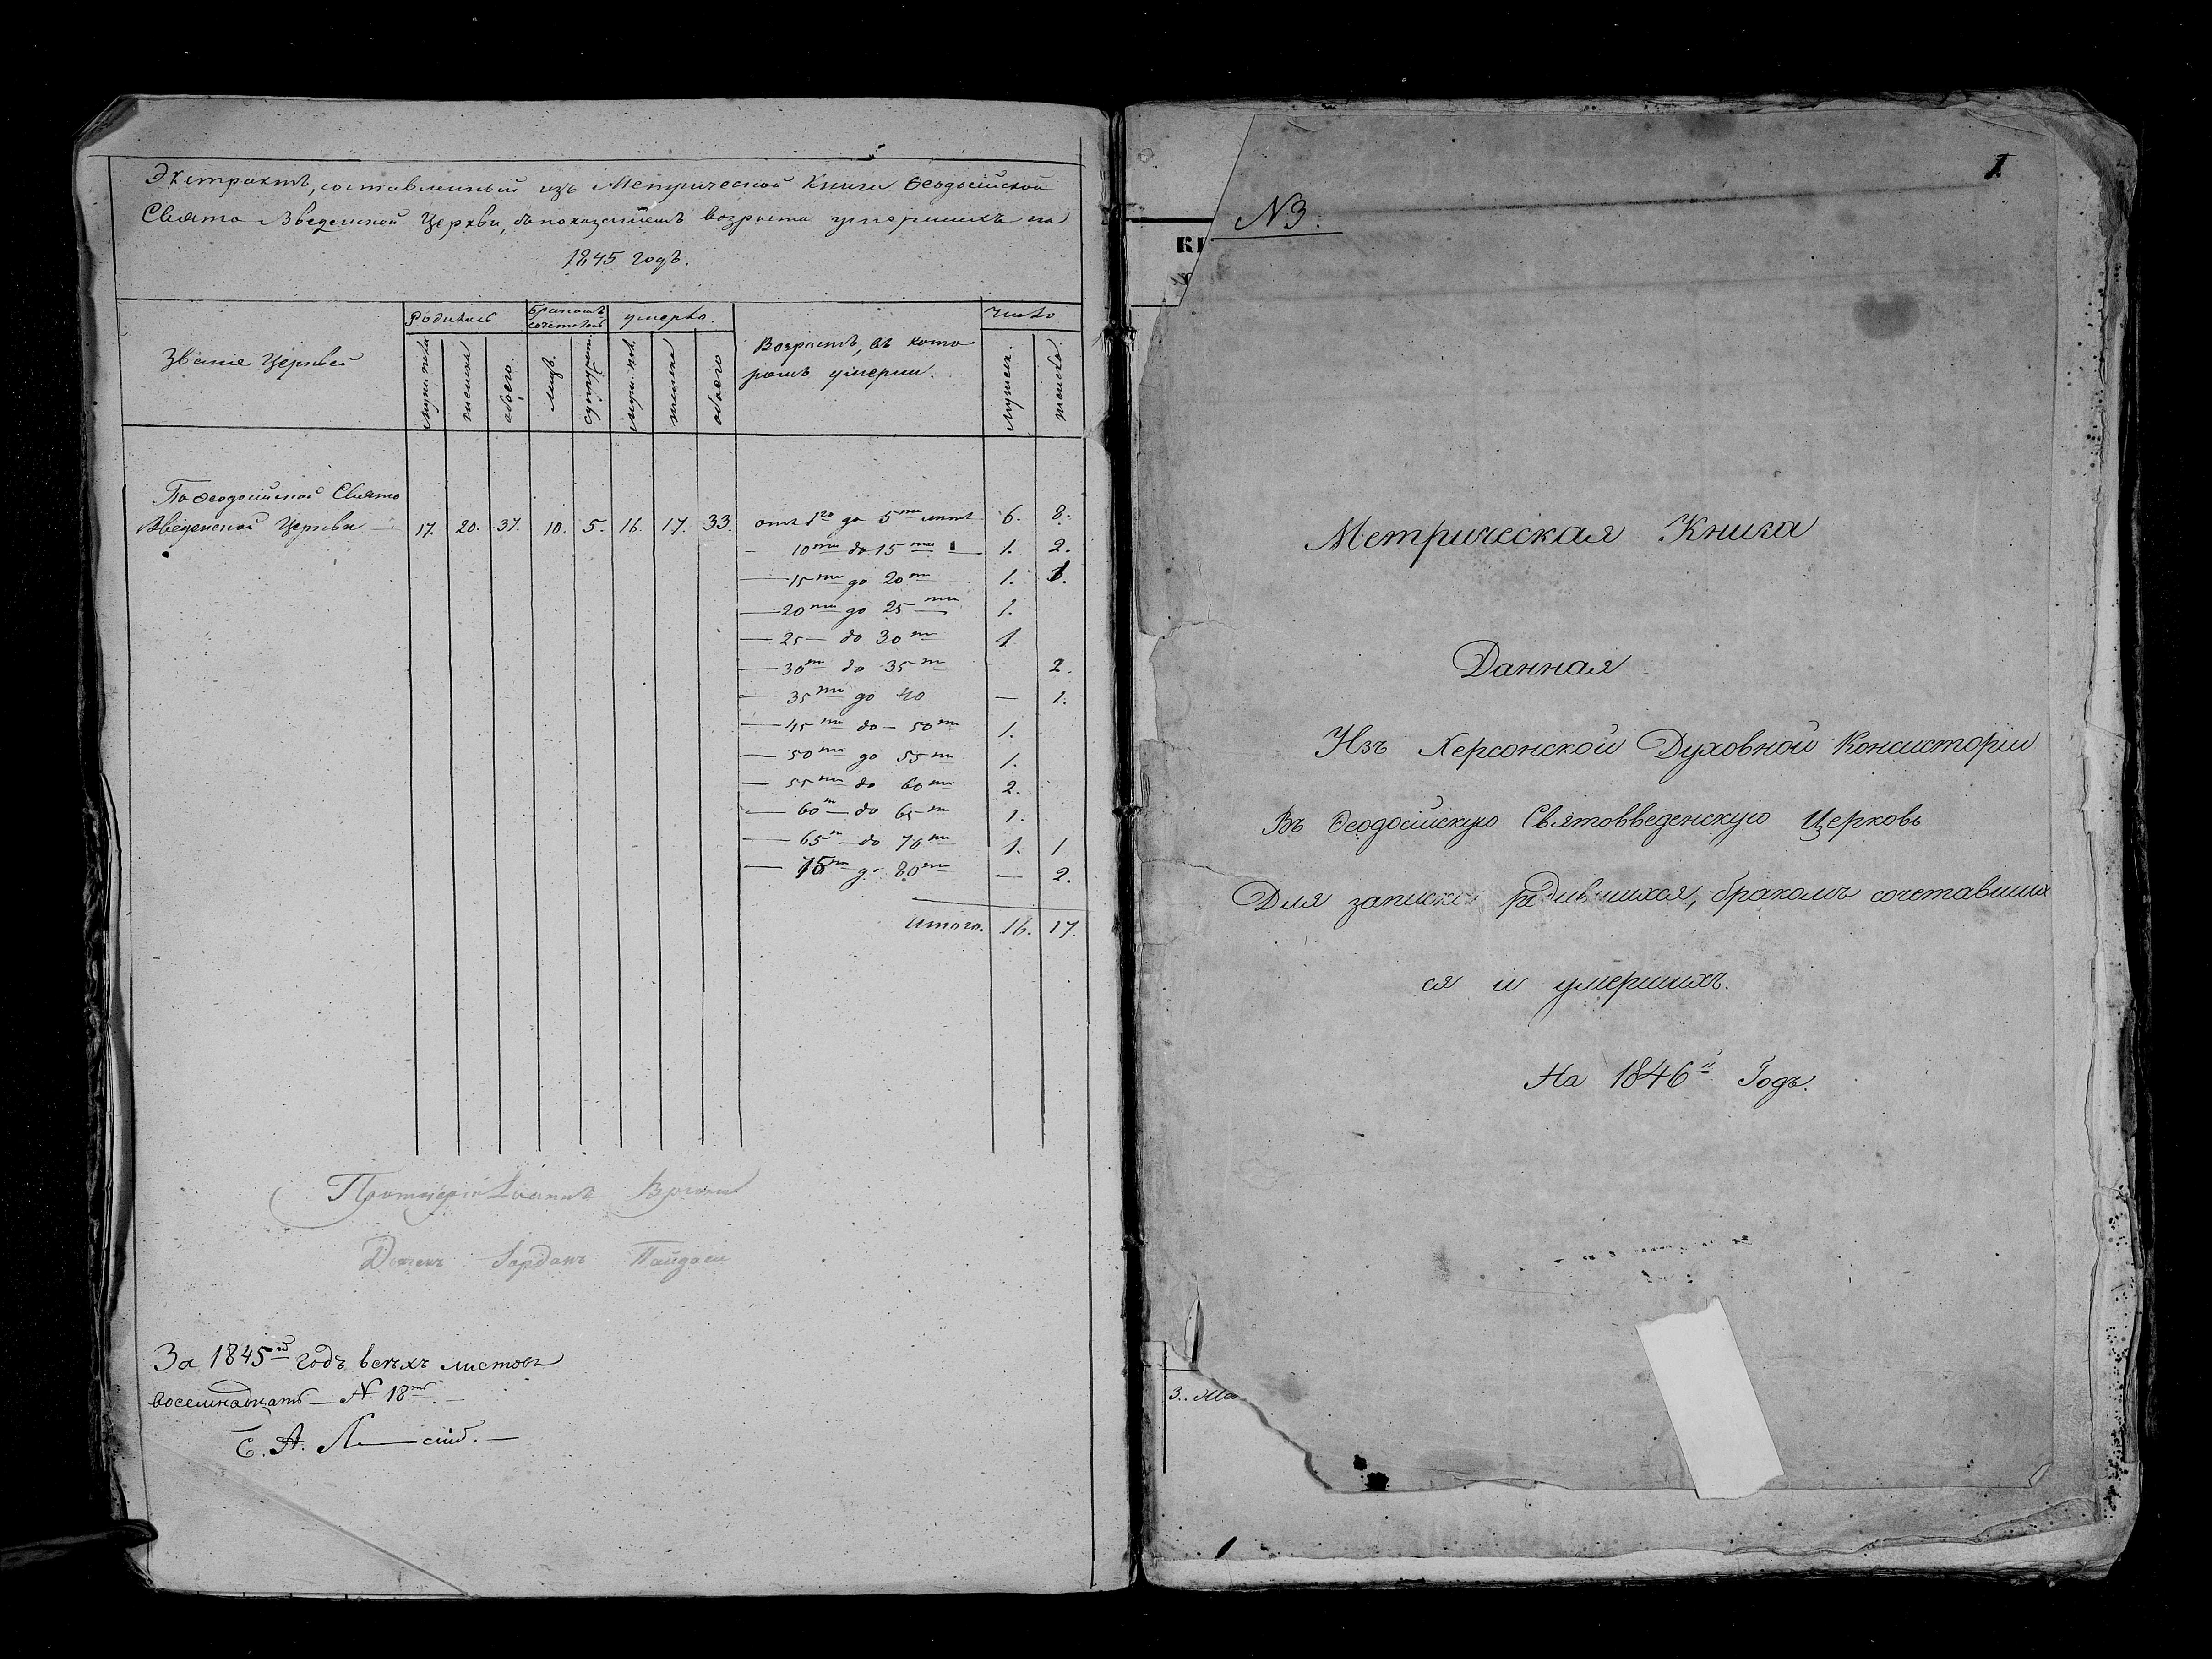 Экстрактъ, составленный изъ Метрической Книги Ѳеодосійской
Свято Введенской Церкви, съ показаніемъ возраста умершихъ на
1845 годъ.
Званіе Церквей
Родились
Бракомъ сочетались
умерло.
Возрастъ, въ кото
ромъ умерли.
Число
муж. пола
женска
обоего.
лицъ.
супруж.
муж. пол.
женска
обоего
мужеск.
женска.
По Ѳеодосійской Свято
Введенской Церкви — 17. 20. 37. 10. 5. 16. 17. 33.
отъ 1го до 5ти лѣтъ 6. 8.
— 10ти до 15ти — 1. 2.
— 15ти до 20ти 1. 1.
— 20ти до 25ти 1.
— 25 — до 30ти 1
— 30ти до 35ти 2.
— 35ти до 40 — 1.
— 45ти до — 50ти 1.
— 50ти до 55ти 1.
— 55ти до 60ти 2.
— 60т — до 65ти 1.
— 65т — до 70ти 1. 1
— 75ти до 80ти — 2.
Итого. 16. 17.
Протоіерей Іоаннъ
Дьячекъ
За 1845й годъ всѣхъ листовъ
восемнадцать — N 18ть. —
С. А. Л——скій. —
1.
N3.
Метрическая Книга
Данная
Изъ Херсонской Духовной Консисторіи
Въ Ѳеодосійскую Святовведенскую Церковь
Для записки родившихся, бракомъ сочетавших
ся и умершихъ.
На 1846й Годъ.
3..